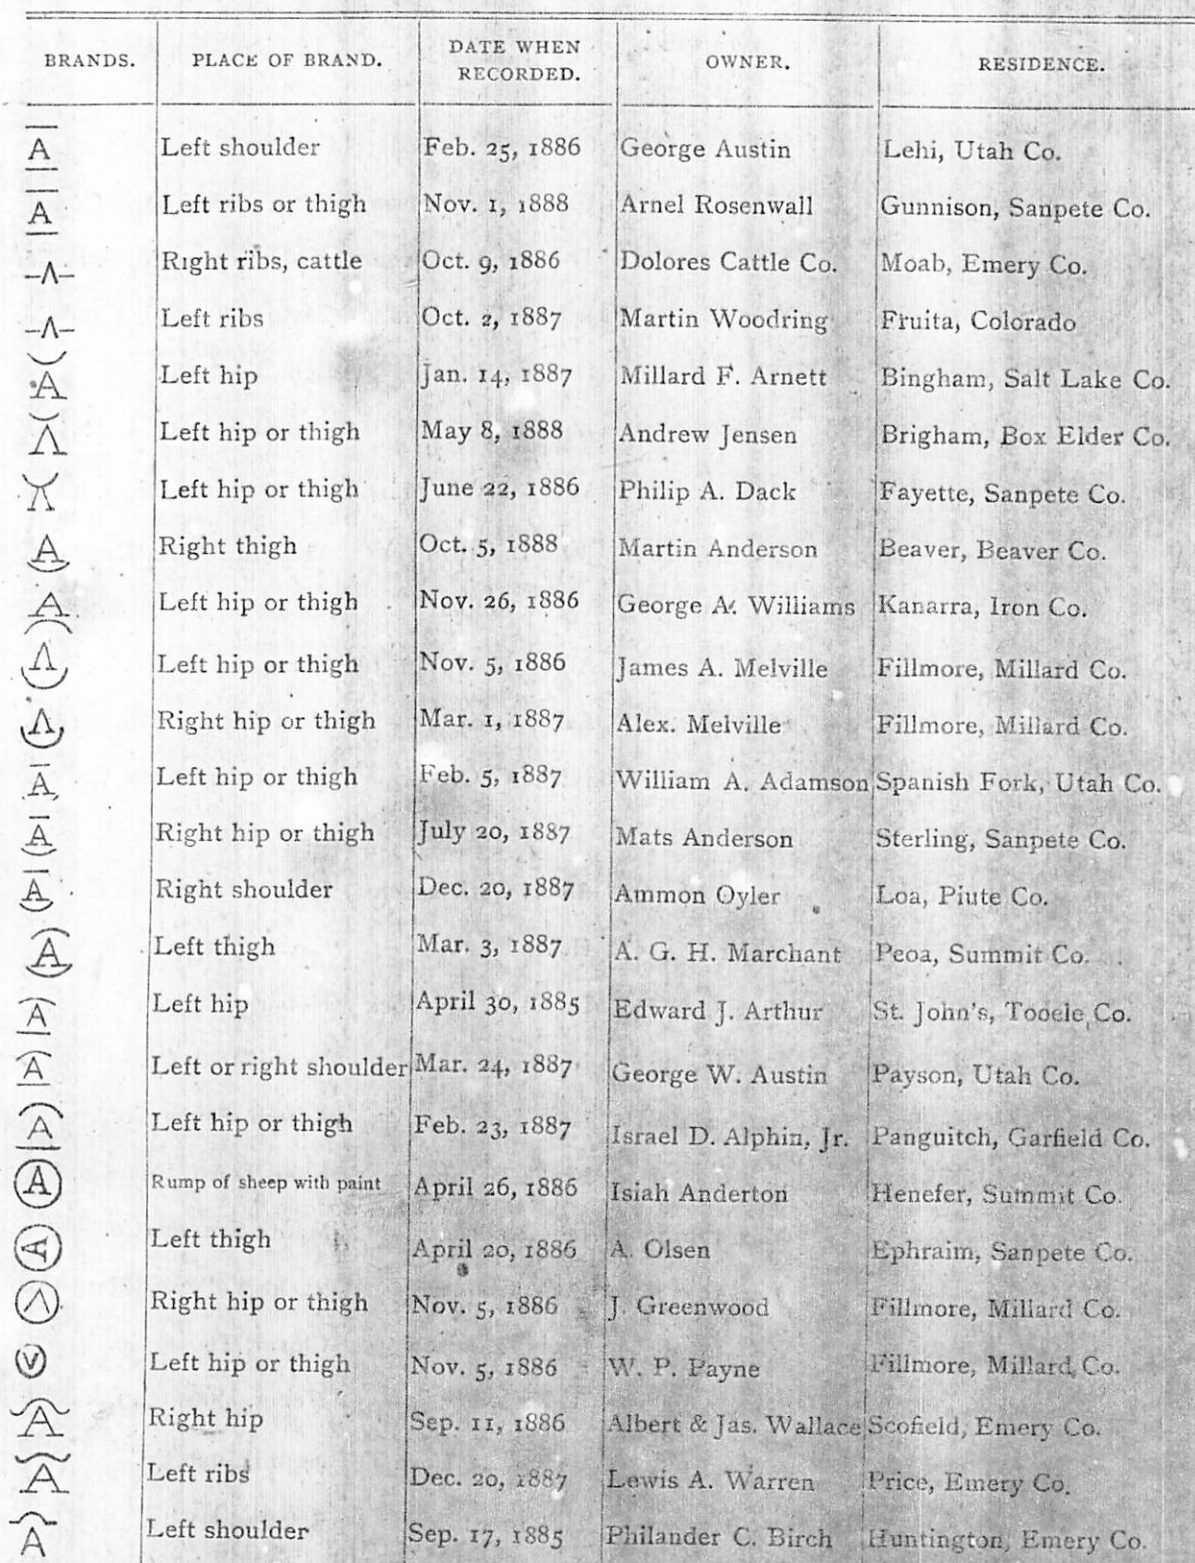 BRANDS. PLACE OF BRAND. DATE WHEN RECORDED. OWNER. RESIDENCE.
A Left shoulder Feb. 25, 1886 George Austin Lehi, Utah Co.
A Left ribs or thigh Nov. 1, 1888 Arnel Rosenwall Gunnison, Sanpete Co.
Right ribs, cattle Oct. 9, 1886 Dolores Cattle Co. Moab, Emery Co.
Left ribs Oct. 2, 1887 Martin Woodring Fruita, Colorado
A Left hip Jan. 14, 1887 Millard F. Arnett Bingham, Salt Lake Co.
Left hip or thigh May 8, 1888 Andrew Jensen Brigham, Box Elder Co.
Left hip or thigh June 22, 1886 Philip A. Dack Fayette, Sanpete Co.
A Right thigh Oct. 5, 1888 Martin Anderson Beaver, Beaver Co.
A Left hip or thigh Nov. 26, 1886 George A. Williams Kanarra, Iron Co.
Left hip or thigh Nov. 5, 1886 James A. Melville Fillmore, Millard Co.
Right hip or thigh Mar. 1, 1887 Alex. Melville Fillmore, Millard Co.
A Left hip or thigh Feb. 5, 1887 William A. Adamson Spanish Fork, Utah Co.
A Right hip or thigh July 20, 1887 Mats Anderson Sterling, Sanpete Co.
A Right shoulder Dec. 20, 1887 Ammon Oyler Loa, Piute Co.
A Left thigh Mar. 3, 1887 A. G. H. Marchant Peoa, Summit Co.
A Left hip April 30, 1885 Edward J. Arthur St. John's, Tooele Co.
A Left or right shoulder Mar. 24, 1887 George W. Austin Payson, Utah Co.
A Left hip or thigh Feb. 23, 1887 Israel D. Alphin, Jr. Panguitch, Garfield Co.
A Rump of sheep with paint April 26, 1886 Isiah Anderton Henefer, Summit Co.
A Left thigh April 20, 1886 A. Olsen Ephraim, Sanpete Co.
Right hip or thigh Nov. 5, 1886 J. Greenwood Fillmore, Millard Co.
V Left hip or thigh Nov. 5, 1886 W. P. Payne Fillmore, Millard Co.
A Right hip Sep. 11, 1886 Albert & Jas. Wallace Scofield, Emery Co.
A Left ribs Dec. 20, 1887 Lewis A. Warren Price, Emery Co.
A Left shoulder Sep. 17, 1885 Philander C. Birch Huntington, Emery Co.